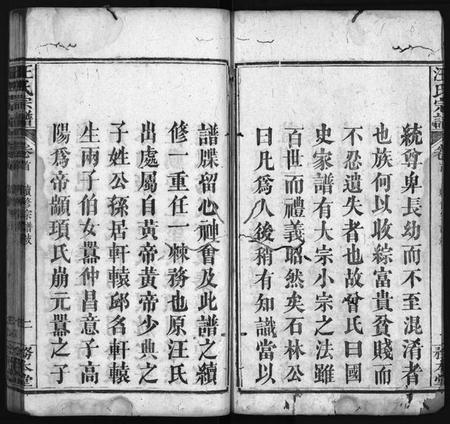 統尊卑長幼而不至混淆者
也族何以收綜富貴貧賤而
不忍遺失者也故曾氏曰國
史家譜有大宗小宗之法雖
百世而禮義昭然矣石林公
曰凡為人後稍有知識當以
譜牒留心神會及此譜之續
修一重任一棘務也原汪氏
出處屬自黃帝黃帝少典之
子姓公孫居軒轅邱名軒轅
生兩子伯女囂仲昌意子高
陽為帝顓頊氏崩元囂之子
汪氏宗譜
卷首
二
務本堂
汪氏宗譜